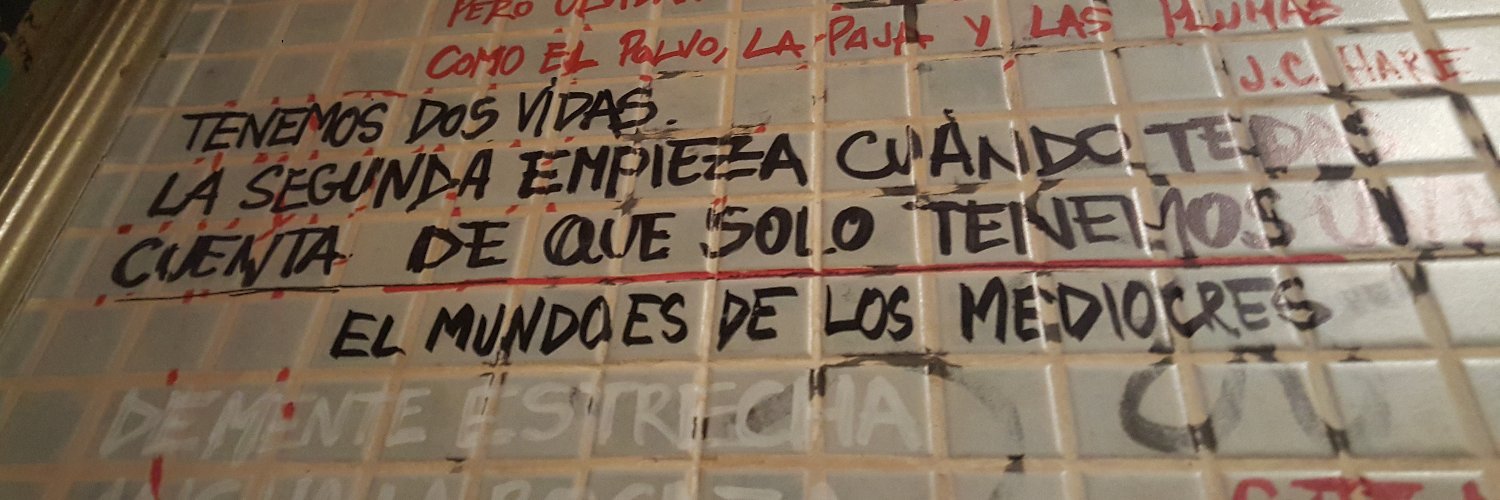 PERO
COMO EL POLVO, LA PAJA Y LAS PLUMAS
J.C. HARE
TENEMOS DOS VIDAS.
LA SEGUNDA EMPIEZA CUÁNDO TE DAS
CUENTA DE QUE SOLO TENEMOS UNA
EL MUNDO ES DE LOS MEDIOCRES
DE MENTE ESTRECHA